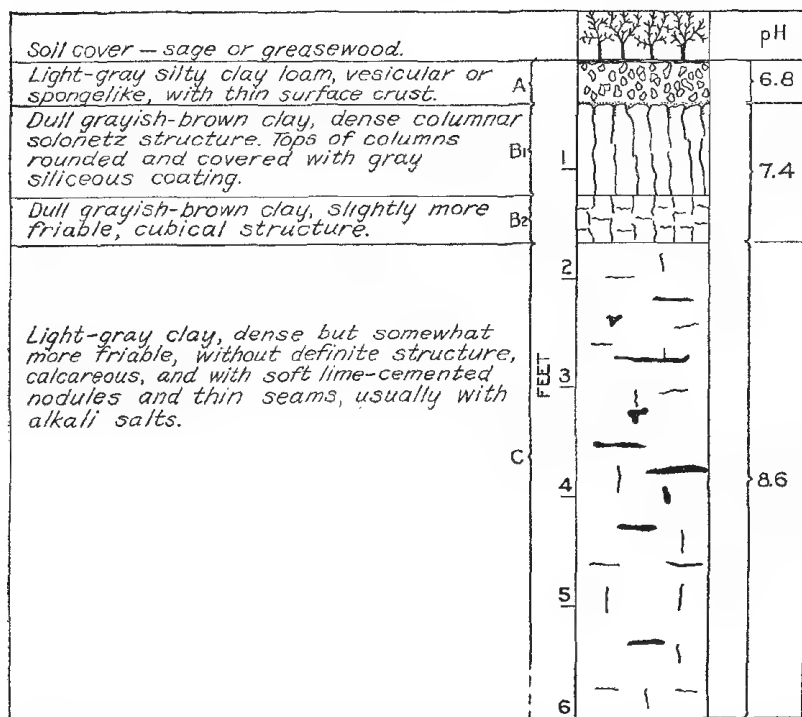 pH
Soil cover — sage or greasewood.
Light-gray silty clay loam, vesicular or
spongelike, with thin surface crust.
A
6.8
Dull grayish-brown clay, dense columnar
solonetz structure. Tops of columns
rounded and covered with gray
siliceous coating.
B1
1
7.4
Dull grayish-brown clay, slightly more
friable, cubical structure.
B2
2
Light-gray clay, dense but somewhat
more friable, without definite structure,
calcareous, and with soft lime-cemented
nodules and thin seams, usually with
alkali salts.
C
FEET
3
4
5
6
8.6